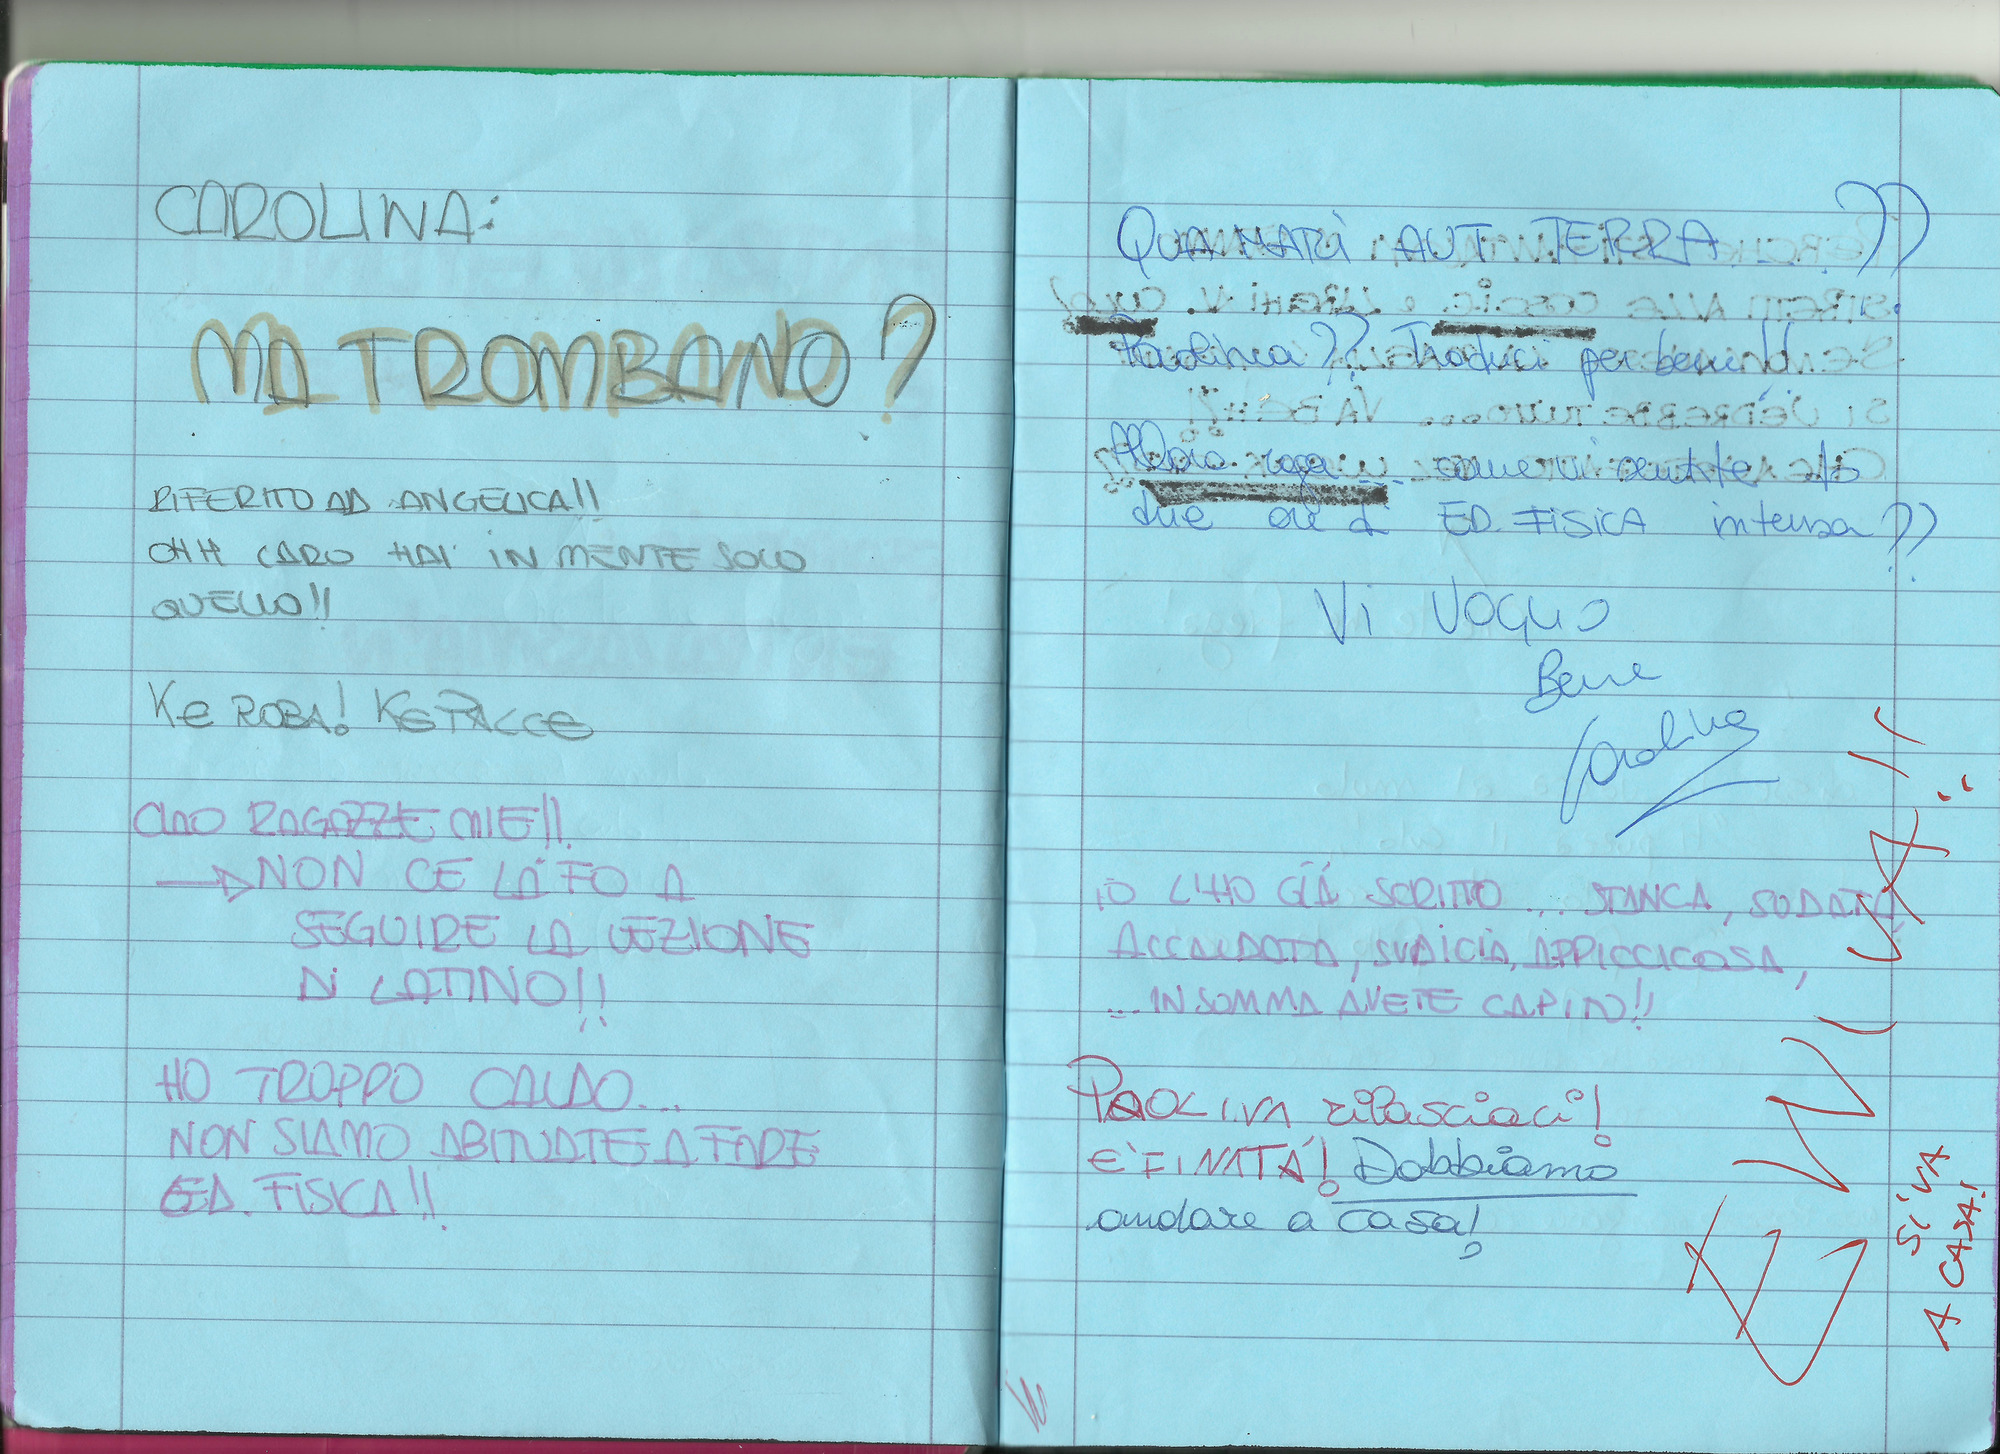 CAROLINA:
MA TROMBANO?
RIFERITO AD ANGELICA!!
OHH CARO HAI IN MENTE SOLO
QUELLO!!
KE ROBA! KE PALLE
CIAO RAGAZZE MIE!!
→ NON CE LA FO A
SEGUIRE LA LEZIONE
DI LATINO!!
HO TROPPO CALDO...
NON SIAMO ABITUATE A FARE
ED. FISICA!!
QUA MARI AUT TERRA ??
Paolina?? Traduci per benino
Allora raga ... come vi sentite dp
due ore di ED. FISICA intensa??
VI VOGLIO
Bene
Carolina
IO L'HO GIÀ SCRITTO ... STANCA, SUDATA,
ACCALDATA, SUDICIA, APPICCICOSA,
... INSOMMA AVETE CAPITO!!
PAOLINA rilasciaci!
E' FINITA! Dobbiamo
andare a casa!
EVVIVA!!
SI VA
A CASA!